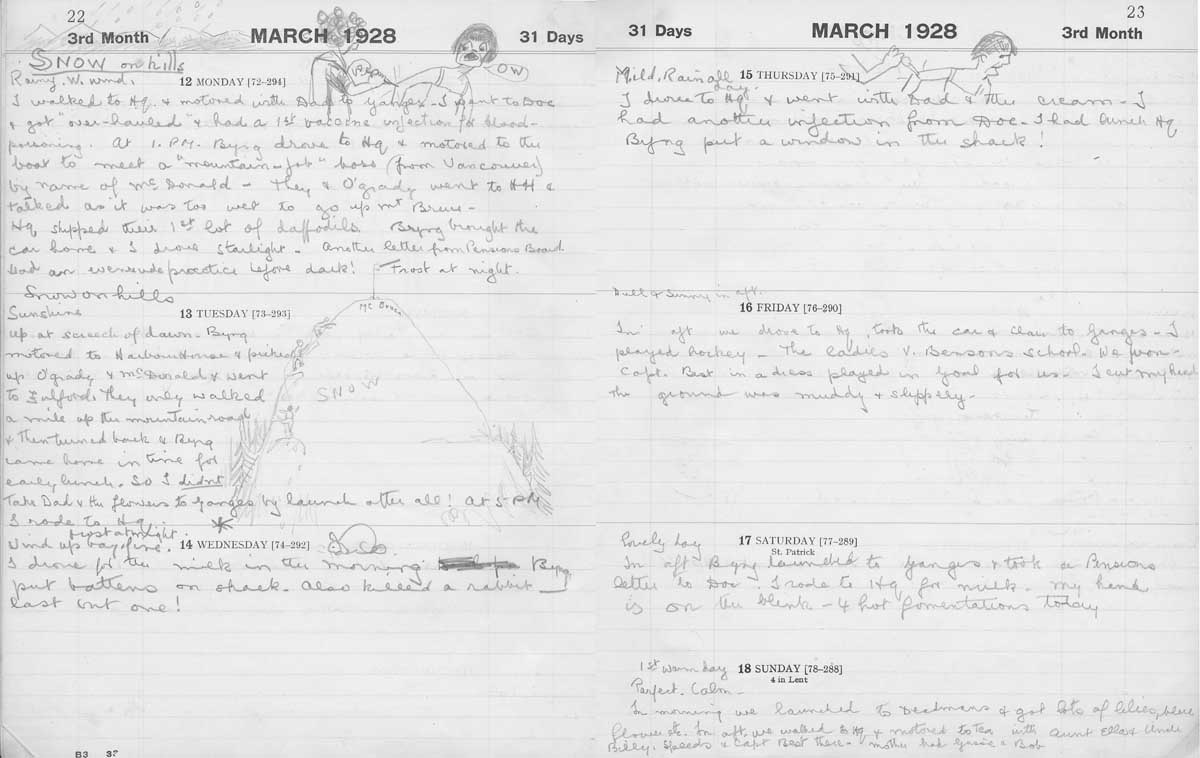 22
3rd Month MARCH 1928 31 Days
SNOW on hills
Rainy. W. wind.
12 MONDAY [72-294]
OW
I walked to Hq. & motored with Dad to Ganges - I went to Doc
& got "over-hauled" & had a 1st vaccine injection for blood-
poisoning. At 1. P.M. Byng drove to Hq & motored to the
boat to meet a "mountain-job" boss (from Vancouver)
by name of McDonald - They & O'grady went to HH &
talked as it was too wet to go up Mt Bruce -
Hq shipped their 1st lot of daffodils. Byng brought the
car home & I drove Starlight - Another letter from Pensions Board
Had an evenrude practice before dark! Frost at night.
Snow on hills
Sunshine
13 TUESDAY [73-293]
Mt Bruce
SNOW
up at screech of dawn - Byng
motored to Harbour House & picked
up O'grady & McDonald & went
to Fulford. They only walked
a mile up the mountain road
& then turned back & Byng
came home in time for
early lunch. So I didnt
take Dad & the flowers to Ganges by launch after all! At 5 PM
I rode to Hq
Frost at night.
Wind up bay. fine.
14 WEDNESDAY [74-292]
I drove for the milk in the morning Byng
put battens on shack. Also killed a rabbit -
last but one!
B3
23
31 Days MARCH 1928 3rd Month
Mild. Rain all day.
15 THURSDAY [75-291]
I drove to Hq & went with Dad & the cream - I
had another injection from Doc - I had lunch Hq
Byng put a window in the shack!
Dull & Sunny in aft.
16 FRIDAY [76-290]
In aft we drove to Hq, took the car & to Ganges - I
played hockey - The ladies V. Bensons school. We won -
Capt. Best in a dress played in goal for us - I cut my head
the ground was muddy & slippery -
Lovely day
17 SATURDAY [77-289]
St. Patrick
In aft Byng launched to Ganges & took a Pensions
letter to Doc. I rode to Hq for milk. My hand
is on the blink - 4 hot fomentations today
1st warm day
18 SUNDAY [78-288]
4 in Lent
Perfect. Calm -
In morning we launched to Deadmans & got lots of lilies, blue
flowers etc. In aft we walked to Hq & motored to tea with Aunt Ella & Uncle
Billy. Speeds & Capt Best there - Mother had & Bob